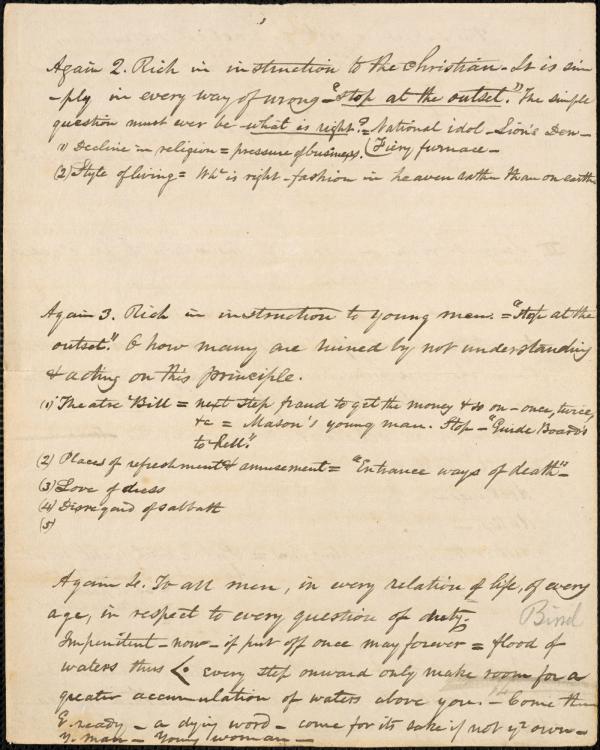 Again 2. Rich in instruction to the Christian - It is sim
-ply in every way of wrong - "Stop at the outset." The simple
question must ever be - what is right? = National idol - Lion's Den -
(1) Decline in religion = pressure of business. (Fiery furnace -
(2) Style of living = Wht is right - fashion in heaven rather than on earth
Again 3. Rich in instruction to young men. = "Stop at the
outset." O how many are ruined by not understanding
& acting on this principle.
(1) Theatre Bill = next step fraud to get the money & so on - once, twice,
&c = Mason's young man. Stop - "Guide Boards
to hell."
(2) Places of refreshment & amusement = "Entrance ways of death" -
(3) Love of dress
(4) Disregard of sabbath
(5)
Again 4. To all men, in every relation of life, of every
age, in respect to every question of duty.
Bird
Impenitent - now - if put off once may forever = flood of
waters thus < every step onward only make room for a
greater accumulation of waters above you. - Come then
E. ready - a dying word - come for its sake if not yr own -
Y. man - Young woman -